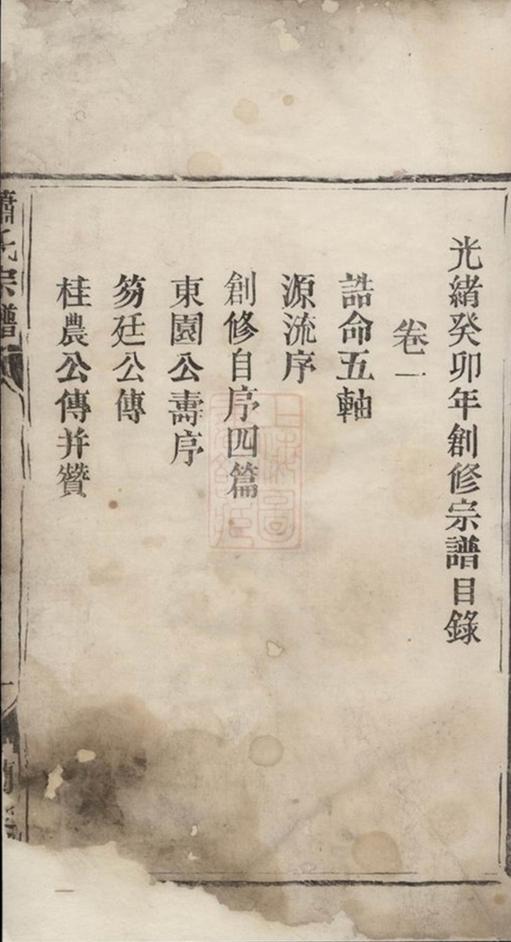 光緒癸卯年創修宗譜目錄
卷一
誥命五軸
源流序
創修自序四篇
東園公壽序
笏廷公傳
桂農公傳并贊
蕭氏宗譜